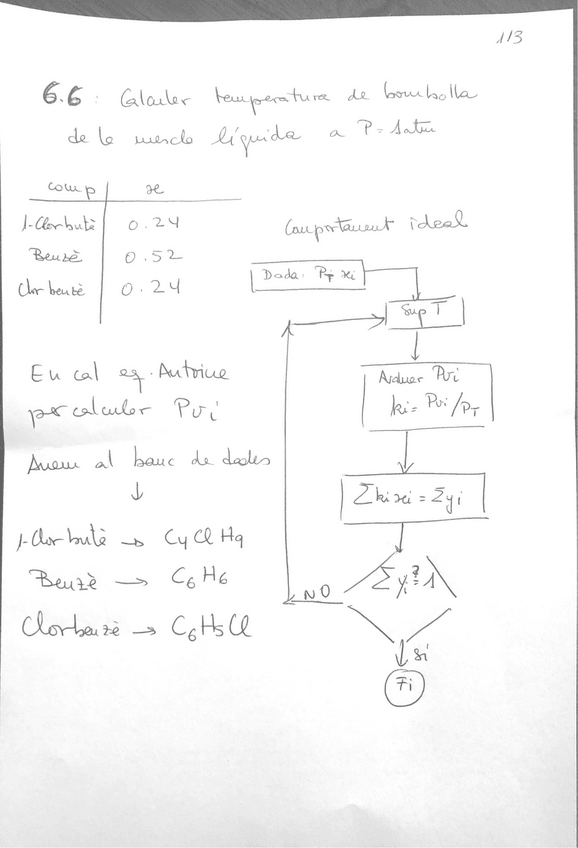 113
6.6: Calculer temperatura de bombolla
de la mescla líquida a P=1atm
comp x
1-Clorbutè 0.24
Benzè 0.52
Clorbenzè 0.24
Comportament ideal
Dada: PT xi
Sup T
Avaluer Pvi
ki = Pvi/PT
Σki xi = Σyi
Σyi ?= 1
NO
sí
Fi
En cal eq. Antoine
per calculer Pvi
Anem al banc de dades
↓
1-Clorbutè → C4ClH9
Benzè → C6H6
Clorbenzè → C6H5Cl